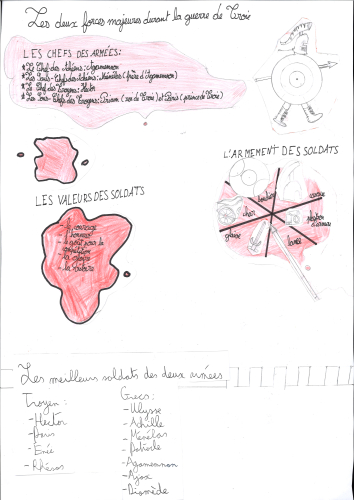 Les deux forces majeures durant la guerre de Troie
LES CHEFS DES ARMÉES:
* Le Chef des Achéens: Agamemnon
* Les Sous-Chefs des Achéens: Ménélas (frère d'Agamemnon)
* Le Chef des Troyens: Hector
* Les Sous-Chefs des Troyens: Priam (roi de Troie) et Pâris (prince de Troie)
L'ARMEMENT DES SOLDATS
bouclier
cuirasse
char
glaive
lance
LES VALEURS DES SOLDATS
- le courage
- l'honneur
- le goût pour la compétition
- la gloire
- la victoire
Les meilleurs soldats des deux armées
Troyen:
- Hector
- Paris
- Enée
- Rhésos
Grecs:
- Ulysse
- Achille
- Ménélas
- Patrocle
- Agamemnon
- Ajax
- Diomède